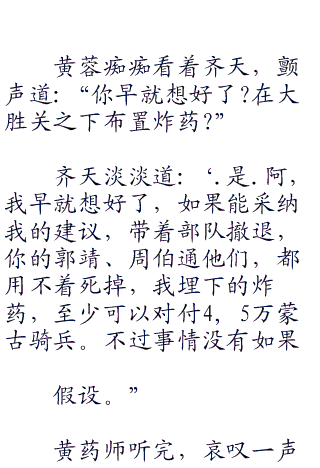 黄蓉痴痴看着齐天，颤
声道：“你早就想好了?在大
胜关之下布置炸药?”
齐天淡淡道：‘.是.阿，
我早就想好了，如果能采纳
我的建议，带着部队撤退，
你的郭靖、周伯通他们，都
用不着死掉，我埋下的炸
药，至少可以对付4，5万蒙
古骑兵。不过事情没有如果
假设。”
黄药师听完，哀叹一声